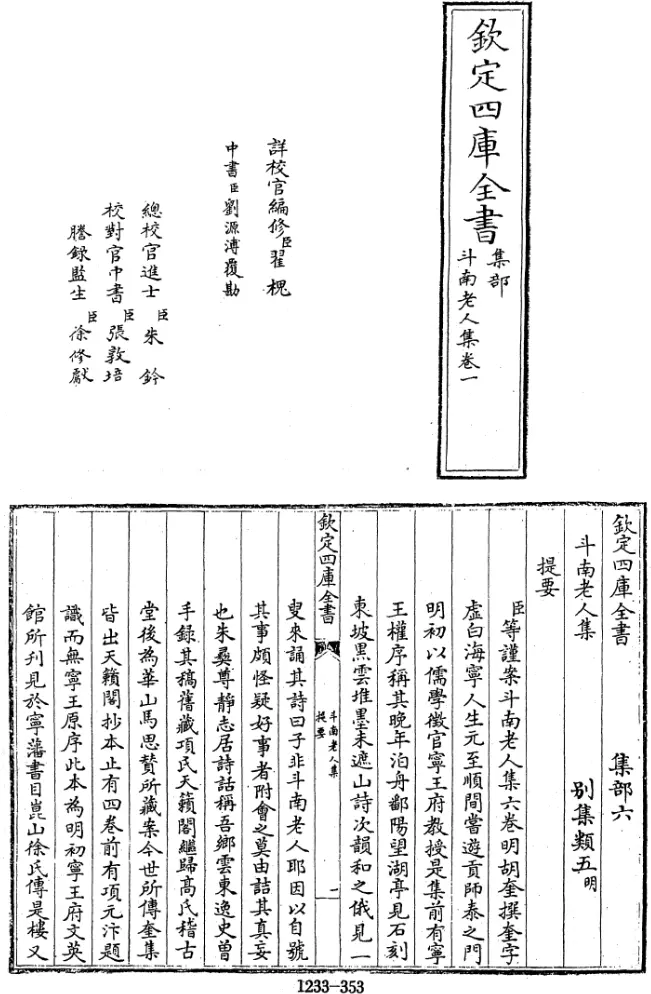 欽定四庫全書
集部
斗南老人集卷一
詳校官編修臣翟槐
中書臣劉源溥覆勘
總校官進士臣朱鈐
校對官中書臣張敦培
謄録監生臣徐修獻
欽定四庫全書
集部六
斗南老人集
别集類五明
提要
臣等謹案斗南老人集六卷明胡奎撰奎字
虚白海寧人生元至順間嘗遊貢師泰之門
明初以儒學徴官寧王府教授是集前有寧
王權序稱其晚年泊舟鄱陽望湖亭見石刻
東坡黒雲堆墨未遮山詩次韻和之俄見一
叟來誦其詩曰子非斗南老人耶因以自號
其事頗怪疑好事者附會之莫由詰其真妄
也朱彞尊靜志居詩話稱吾鄉雲東逸史曽
手録其稿舊藏項氏天籟閣繼歸高氏稽古
堂後為華山馬思贊所藏案今世所傳奎集
皆出天籟閣抄本止有四卷前有項元汴題
識而無寧王原序此本為明初寧王府文英
館所刊見於寧藩書目崑山徐氏傳是樓又
欽定四庫全書
斗南老人集
提要
一
1233-353